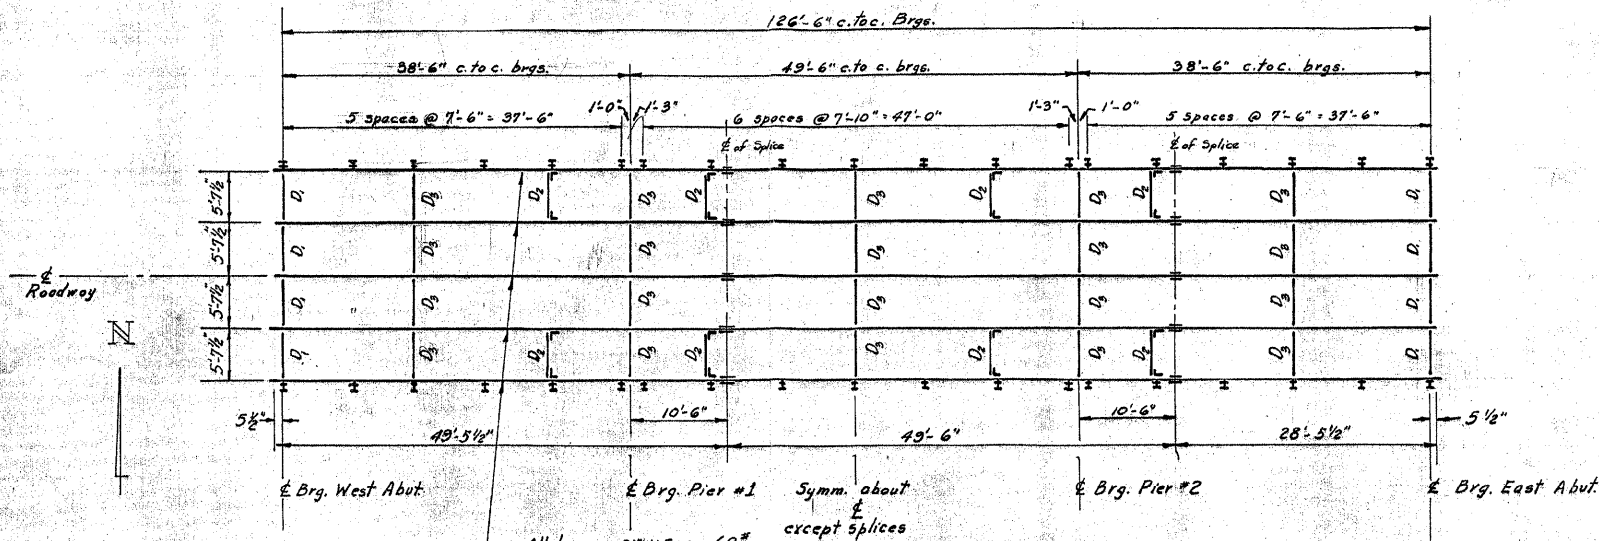 126'-6" c.toc. Brgs.
38'-6" c.to c. brgs.
49'-6" c.to c. brgs.
38'-6" c.to c. brgs.
5 spaces @ 7'-6" = 37'-6"
1'-0"
1'-3"
6 spaces @ 7'-10" = 47'-0"
1'-3"
1'-0"
5 spaces @ 7'-6" = 37'-6"
℄ of Splice
℄ of Splice
5'-7½"
D₁
D₃
D₂
D₃
D₂
D₃
D₂
D₃
D₂
D₃
D₁
5'-7½"
D₁
D₃
D₃
D₃
D₃
D₃
D₁
℄
Roadway
5'-7½"
D₁
D₃
D₃
D₃
D₃
D₃
D₁
N
5'-7½"
D₁
D₃
D₂
D₃
D₂
D₃
D₂
D₃
D₂
D₃
D₁
5½"
10'-6"
10'-6"
5½"
49'-5½"
49'-6"
28'-5½"
℄ Brg. West Abut.
℄ Brg. Pier #1
Symm. about
℄
except splices
℄ Brg. Pier #2
℄ Brg. East Abut.